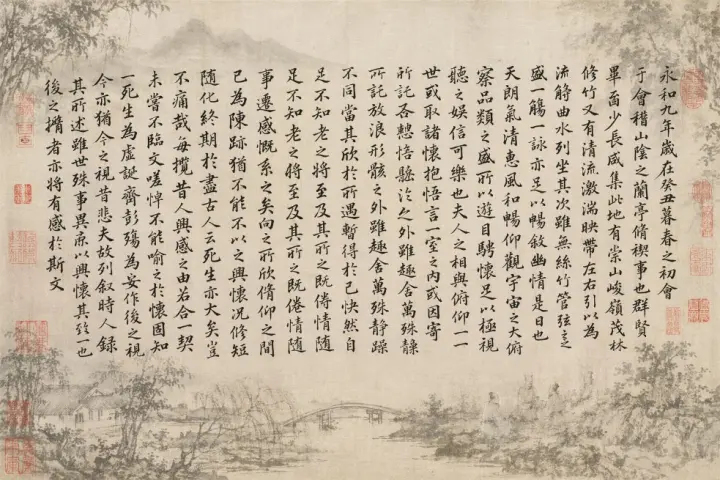 永和九年歲在癸丑暮春之初會
于會稽山陰之蘭亭脩禊事也群賢
畢面少長咸集此地有崇山峻嶺茂林
修竹又有清流激湍映帶左右引以為
流觴曲水列坐其次雖無絲竹管弦之
盛一觴一詠亦足以暢敘幽情是日也
天朗氣清惠風和暢仰觀宇宙之大俯
察品類之盛所以遊目騁懷足以極視
聽之娛信可樂也夫人之相與俯仰一一
世或取諸懷抱悟言一室之內或因寄
所託悟外雖趣舍萬殊
所託放浪形骸之外雖趣舍萬殊靜躁
不同當其欣於所遇暫得於己快然自
足不知老之將至及其所之既倦情隨
足不知老之將至及其所之既倦情隨
事遷感慨系之矣向之所欣脩仰之間
已為陳跡猶不能不以之興懷况修短
隨化終期於盡古人云死生亦大矣豈
不痛哉每攬昔人興感之由若合一契
未嘗不臨文嗟悼不能喻之於懷固知
一死生為虛誕齊彭殤為妄作後之視
今亦猶今之視昔悲夫故列叙時人錄
其所述雖世殊事異以興懷其致一也
後之攬者亦將有感於斯文